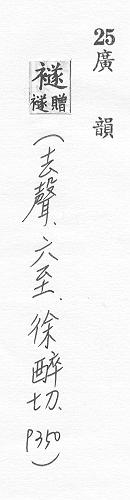 25廣韻
襚 襚贈
(去聲、六至、徐醉切、P350)